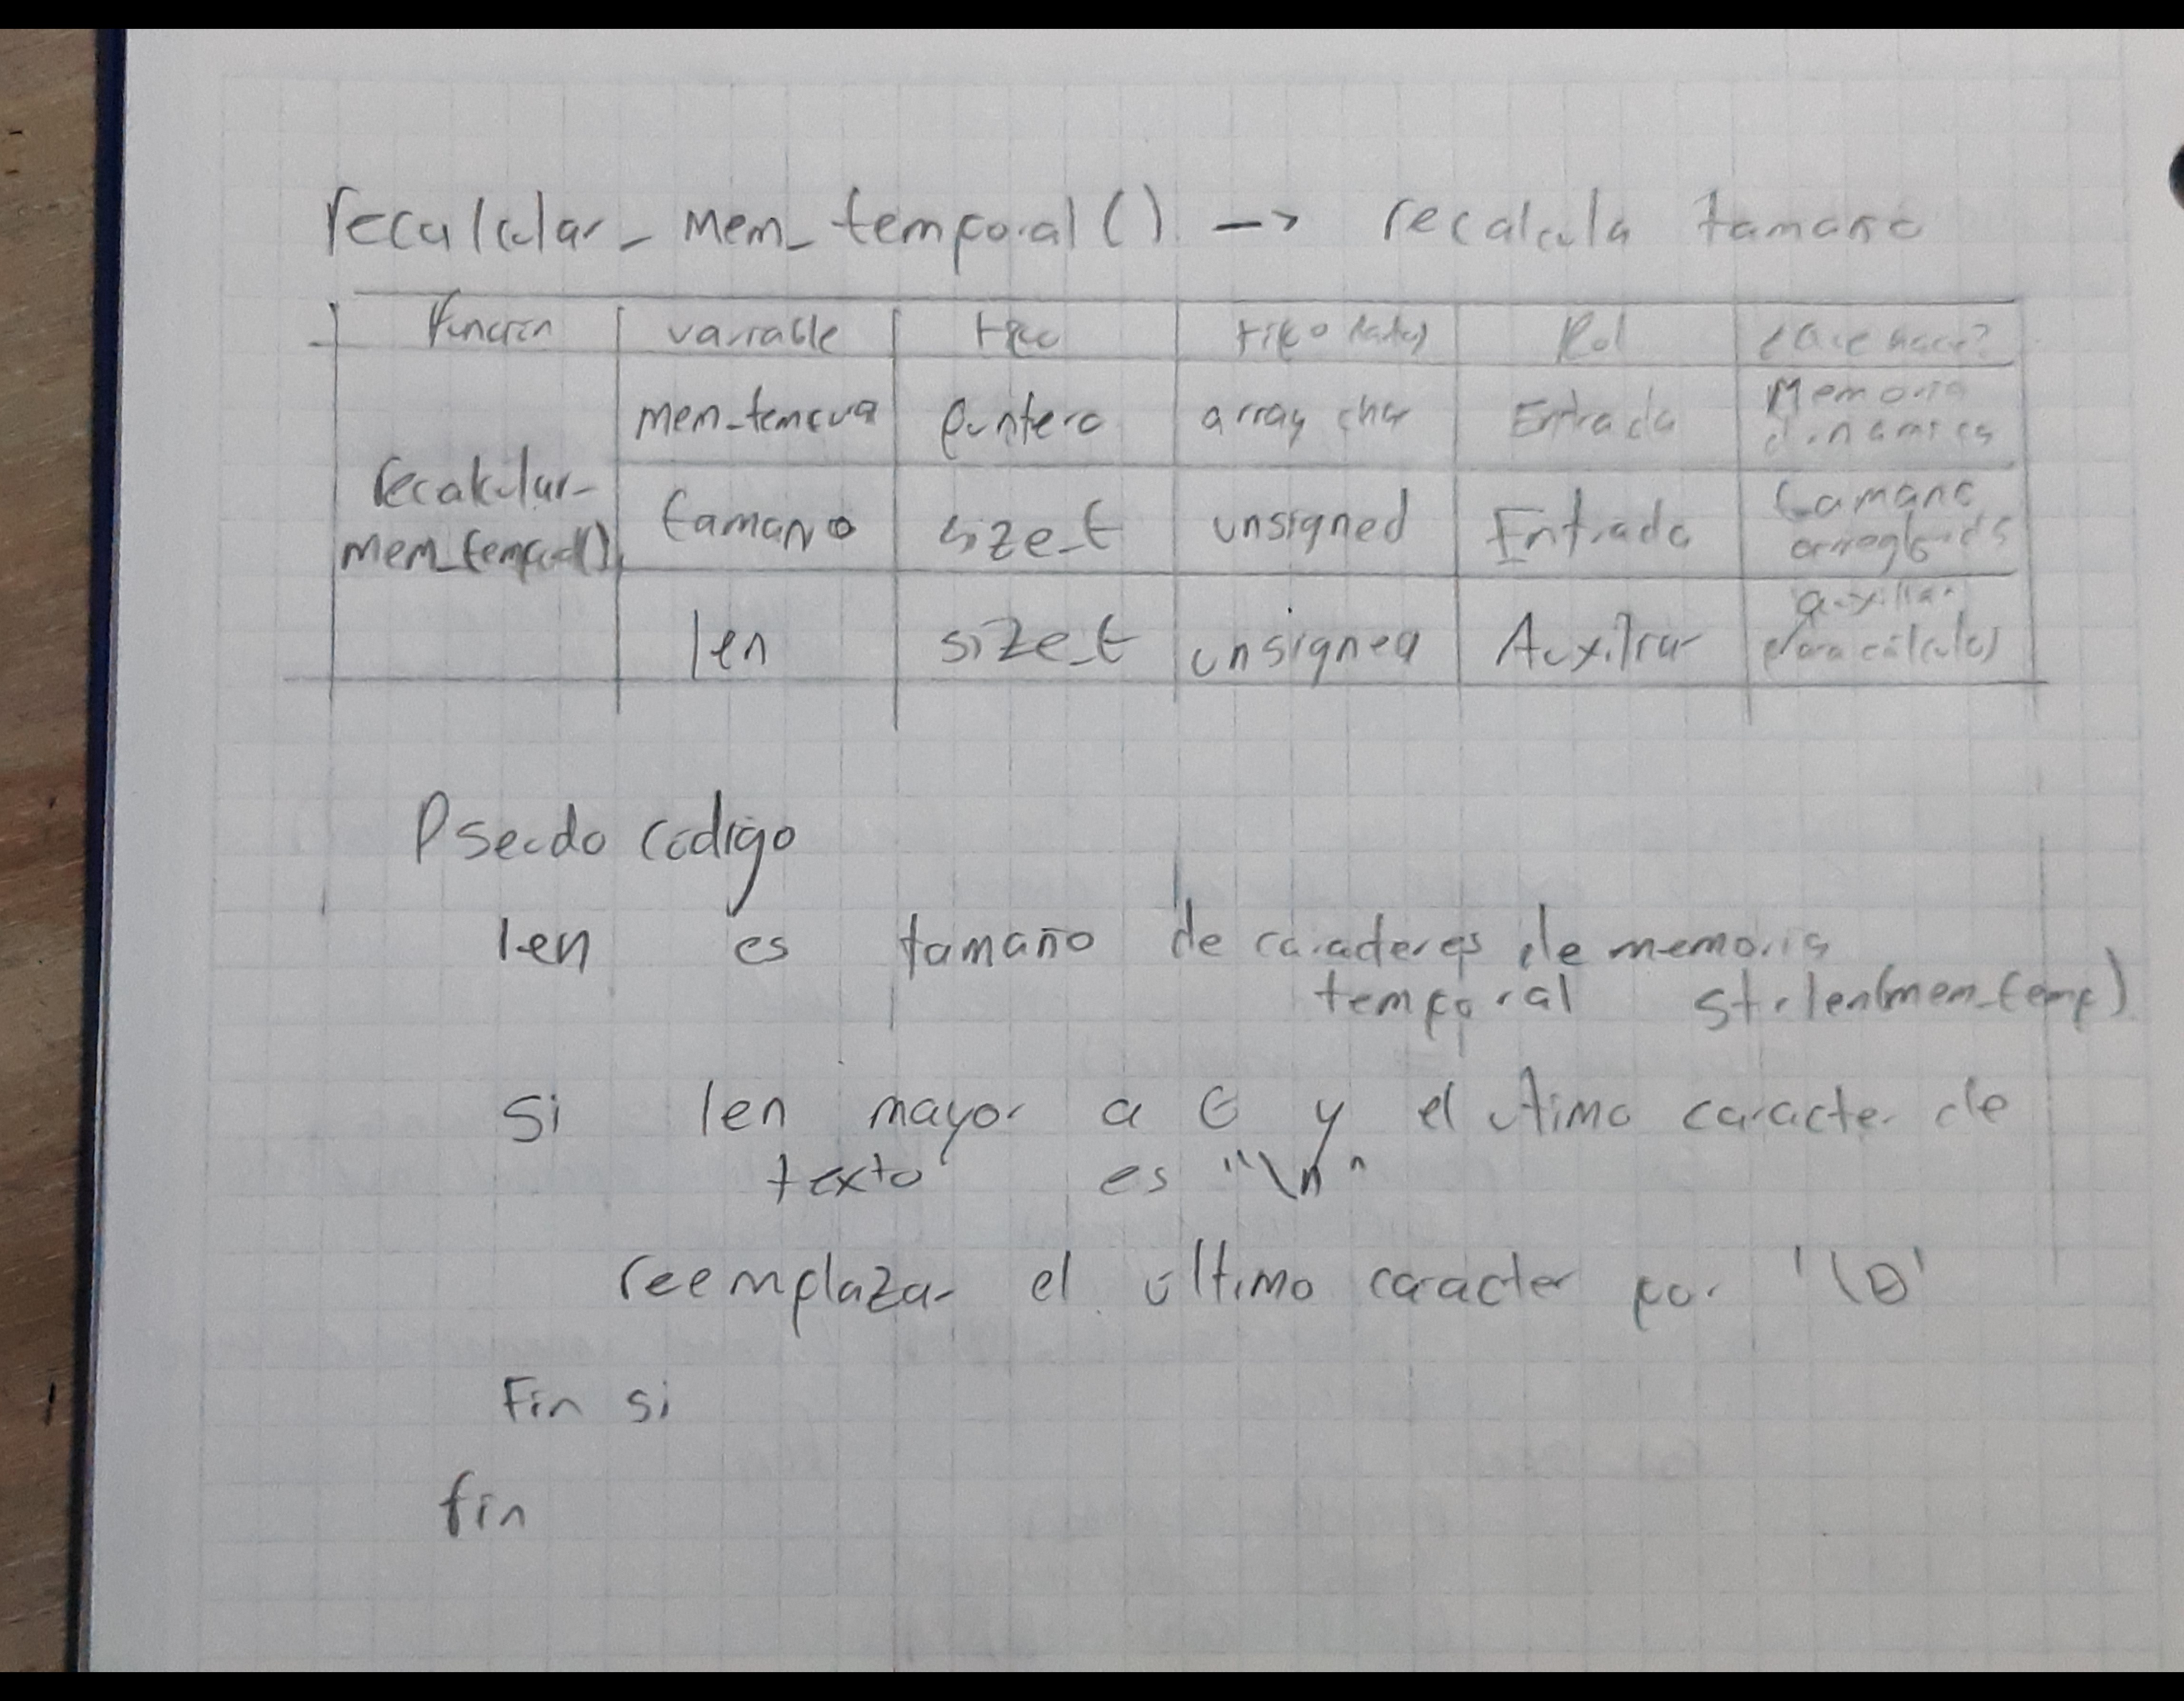 recalcular_mem_temporal() -> recalcula tamaño
Función variable tipo tipo datos Rol ¿Que hace?
mem_tempora puntero array char Entrada Memoria dinamica
recalcular_mem_temporal() tamaño size_t unsigned Entrada tamano
len size_t unsigned Auxiliar auxiliar para cálculos
Pseudo codigo
len es tamaño de caracteres de memoria
temporal strlen(mem_temp)
si len mayor a 0 y el ultimo caracter de
texto es "\n"
reemplazar el ultimo caracter por '\0'
Fin si
fin